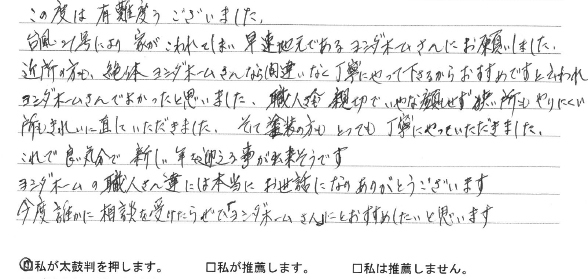 この度は有難度うございました。
台風21号により家がこわれてしまい早速地元であるヨシダホームさんにお願いしました。
近所の方も、絶体ヨシダホームさんなら間違いなく丁寧にやって下さるからおすすめですと言われ
ヨシダホームさんでよかったと思いました。職人さん親切でいやな顔せず狭い所もやりにくい
所もきれいに直していただきました。そして塗装の方もとっても丁寧にやっていただきました。
これで良い気分で新しい年を迎える事が出来そうです
ヨシダホームの職人さん達には本当にお世話になりありがとうございます
今度誰かに相談を受けたらぜひ「ヨシダホームさん」にとおすすめしたいと思います
私が太鼓判を押します。 □私が推薦します。 □私は推薦しません。